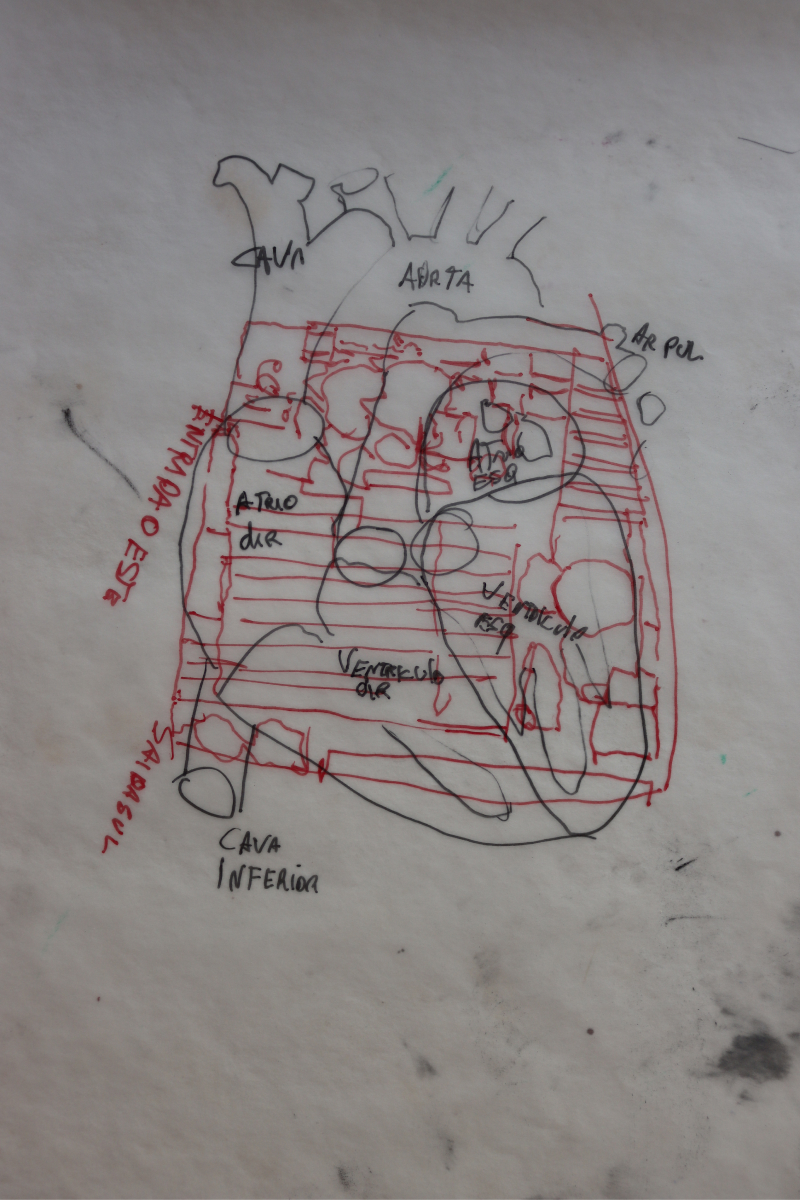 CAVA
AORTA
AR PUL
ENTRADA OESTE
ATRIO
ESQ
ATRIO
dIR
VENTRICULO
ESQ
VENTRICULO
dIR
SAIDA SUL
CAVA
INFERIOR